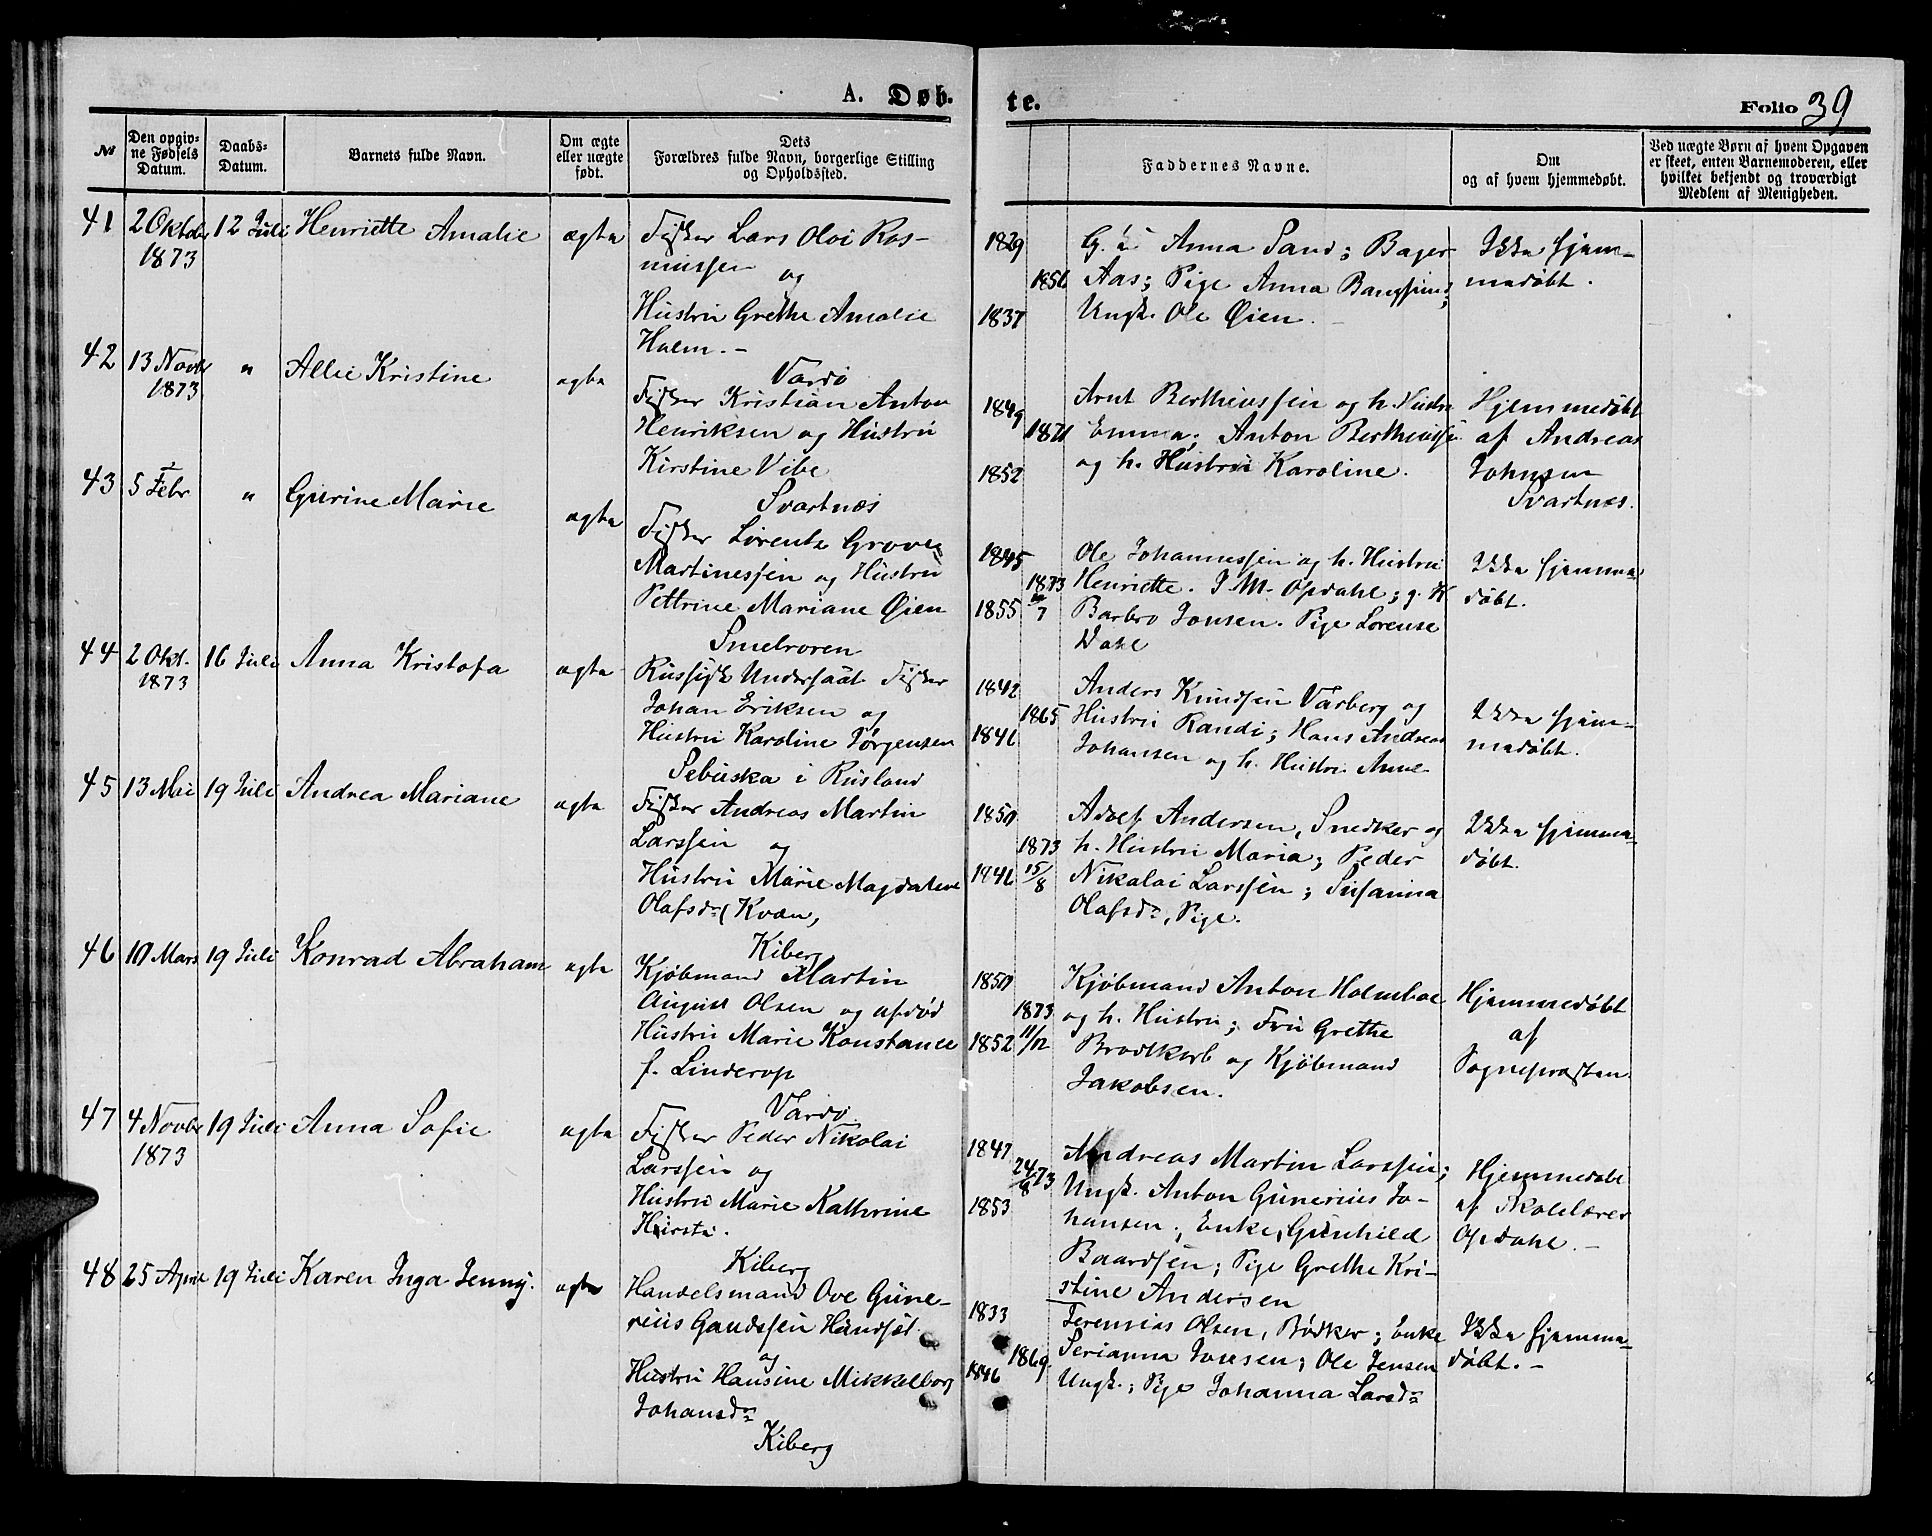 A. Døb-
te.
Folio 39
№
Den opgiv-
ne Fødsels
Datum.
Daabs-
Datum.
Barnets fulde Navn.
Om ægte
eller uægte
født.
Dets
Forældres fulde Navn, borgerlige Stilling
og Opholdssted.
Faddernes Navne.
Om
og af hvem hjemmedøbt.
Ved uægte Børn af hvem Opgaven
er skeet, enten Barnemoderen, eller
hvilket bekjendt og troværdigt
Medlem af Menigheden.
41
2 Oktober
1873
12 Juli
Henriette Amalie
ægte
Fisker Lars Oloi Ras-
mussen
og
Hustru Grethe Amalie
Holm. -
Vardø
1829
1856
1837
G. i Anna Sand; Bager
Aas; Pige Anna Bangsund;
Ungk. Ole Øien.
Ikke hjem-
medøbt.
42
13 Novbr
1873
"
Allie Kristine
ægte
Fisker Kristian Anton
Henriksen og Hustru
Kirstine Vibe
Svartnæs
1849
1871
1852
Arnt Bertheussen og h. Hustru
Emma; Anton Bertheussen
og h. Hustru Karoline.
Hjemmedøbt
af Andreas
Johnsen
Svartnes.
43
5 Febr
"
Gurine Marie
ægte
Fisker Lorentz Grove
Martinessen og Hustru
Pettrine Mariane Øien
Smelroren
1845
1873
1855
Ole Johannessen og h. Hustru
Henriette. J. M. Opdahl; g. K
Barbro Jonsen. Pige Lorense
Dahl
Ikke hjemme-
døbt.
44
2 Okt.
1873
16 Juli
Anna Kristofa
ægte
Russisk Undersaat Fisker
Johan Eriksen og
Hustru Karoline Jørgensen
Sebuska i Rusland
1842
1865
1841
Anders Knudsen Varberg og
Hustru Randi; Hans Andreas
Johansen og h. Hustru Anne
Ikke hjem-
medøbt.
45
13 Mai
19 Juli
Andrea Mariane
ægte
Fisker Andreas Martin
Larssen
og
Hustru Marie Magdalene
Olafsdr (Kvæn,
Kiberg
1850
1873
15/8
1846
Adolf Andersen, Snedker og
h. Hustru Maria; Peder
Nikolai Larssen; Susanna
Olafsdr, Pige.
Ikke hjemme-
døbt.
46
10 Mars
19 Juli
Konrad Abraham
ægte
Kjøbmand Martin
August Olsen og afdød
Hustru Marie Konstance
f. Linderop
Vardø
1850
1873
11/12
1852
Kjøbmand Anton Holmboe
og h. Hustru; Fru Grethe
Brodtkorb og Kjøbmand
Jakobsen.
Hjemmedøbt
af
Sognepræsten.
47
4 Novbr
1873
19 Juli
Anna Sofie
ægte
Fisker Peder Nikolai
Larssen og
Hustru Marie Kathrine
Hirsti.
Kiberg
1847
24/8 73
1853
Andreas Martin Larssen;
Ungk. Anton Gunerius Jo-
hansen; Enke Gunhild
Baardsen; Pige Grethe Kri-
stine Andersen
Hjemmedøbt
af Skolelærer
Opdahl. -
48
25 April
19 Juli
Karen Inga Jenny.
ægte
Handelsmand Ove Gune-
rius Gaudssen
og
Hustru Hansine Mikkelborg
Johansdr
Kiberg
1833
1869
1846
Jeremias Olsen, Bødker; Enke
Serianna Jonsen; Ole Jensen
Ungk.; Pige Johanna Larsdr
Ikke hjemme-
døbt. -